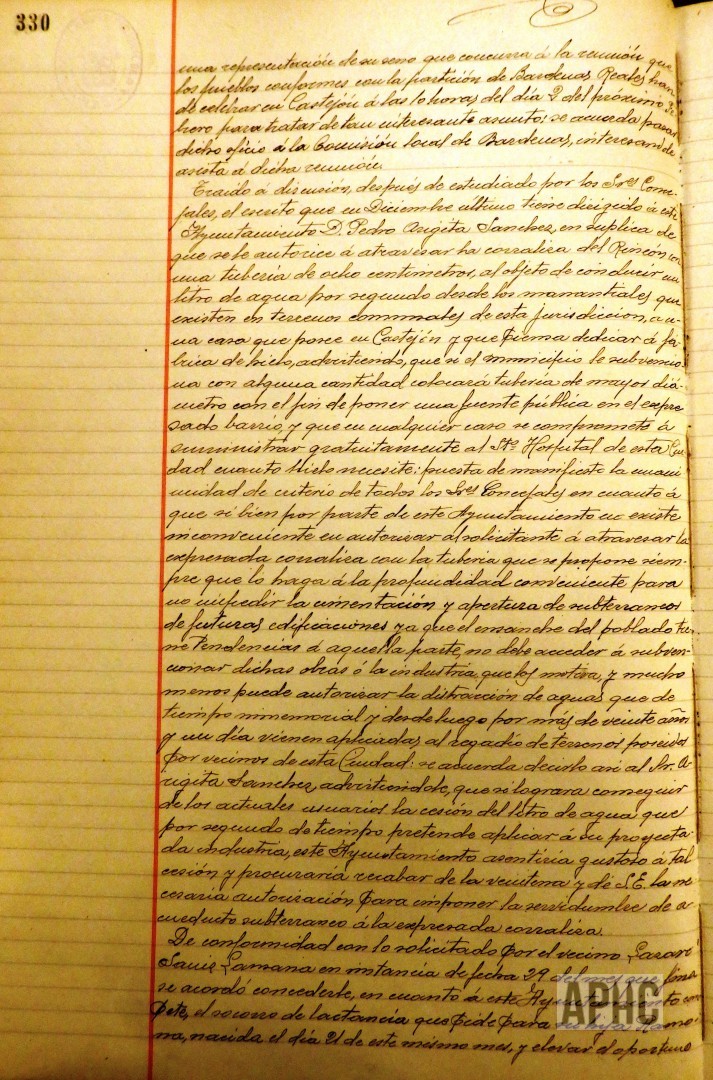 330
una representación de su seno que concurra á la reunión que
los pueblos conformes con la partición de Bardenas Reales han
de celebrar en Castejón á las 10 horas del día 2 del próximo Fe-
brero para tratar de tan interesante asunto: se acuerda pasar
dicho oficio á la Comisión local de Bardenas, interesando
asista á dicha reunión.
Traido á discusión, después de estudiado por los Sres. Conce-
jales, el escrito que en Diciembre último tiene dirigido á este
Ayuntamiento D. Pedro Arigita Sanchez, en suplica de
que se le autorice á atravesar la corraliza del Rincón con
una tuberia de ocho centimetros, al objeto de conducir un
litro de agua por segundo desde los manantiales que
existen en terrenos comunales de esta jurisdiccion, a u-
na casa que posee en Castejón y que piensa dedicar á fá-
brica de hielo, advirtiendo, que si el municipio le subvencio-
na con alguna cantidad colocará tuberia de mayor diá-
metro con el fin de poner una fuente pública en el expre-
sado barrio, y que en cualquier caso se compromete á
suministrar gratuitamente al Sto. Hospital de esta Ciu-
dad cuanto hielo necesite: puesta de manifiesto la unani-
midad de criterio de todos los Sres. Concejales en cuanto á
que si bien por parte de este Ayuntamiento no existe
inconveniente en autorizar al solicitante á atravesar la
expresada corraliza con la tuberia que se propone siem-
pre que lo haga á la profundidad conveniente para
no impedir la cimentación y apertura de subterraneos
de futuras edificaciones ya que el ensanche del poblado tie-
ne tendencias á aquella parte, no debe acceder á subven-
cionar dichas obras ó la industria que los motiva, y mucho
menos puede autorizar la distracción de aguas que de
tiempo inmemorial y desde luego por más de veinte años
y un día vienen aplicadas al regadío de terrenos poseidos
por vecinos de esta Ciudad: se acuerda decirlo así al Sr. A-
rigita Sanchez, advirtiendole, que si lograra conseguir
de los actuales usuarios la cesión del litro de agua que
por segundo de tiempo pretende aplicar á su proyecta-
da industria, este Ayuntamiento asentiria gustoso á tal
cesión y procuraria recabar de la veintena y de S.E. la ne-
cesaria autorización para imponer la servidumbre de a-
cueducto subterraneo á la expresada corraliza.
De conformidad con lo solicitado por el vecino Lazaro
Lamana en instancia de fecha 29 del mes que fina
se acordó concederle, en cuanto á este Ayuntamiento com-
pete, el socorro de lactancia que pide para su hija Ramo-
na, nacida el día 21 de este mismo mes, y elevar el oportuno
APHC